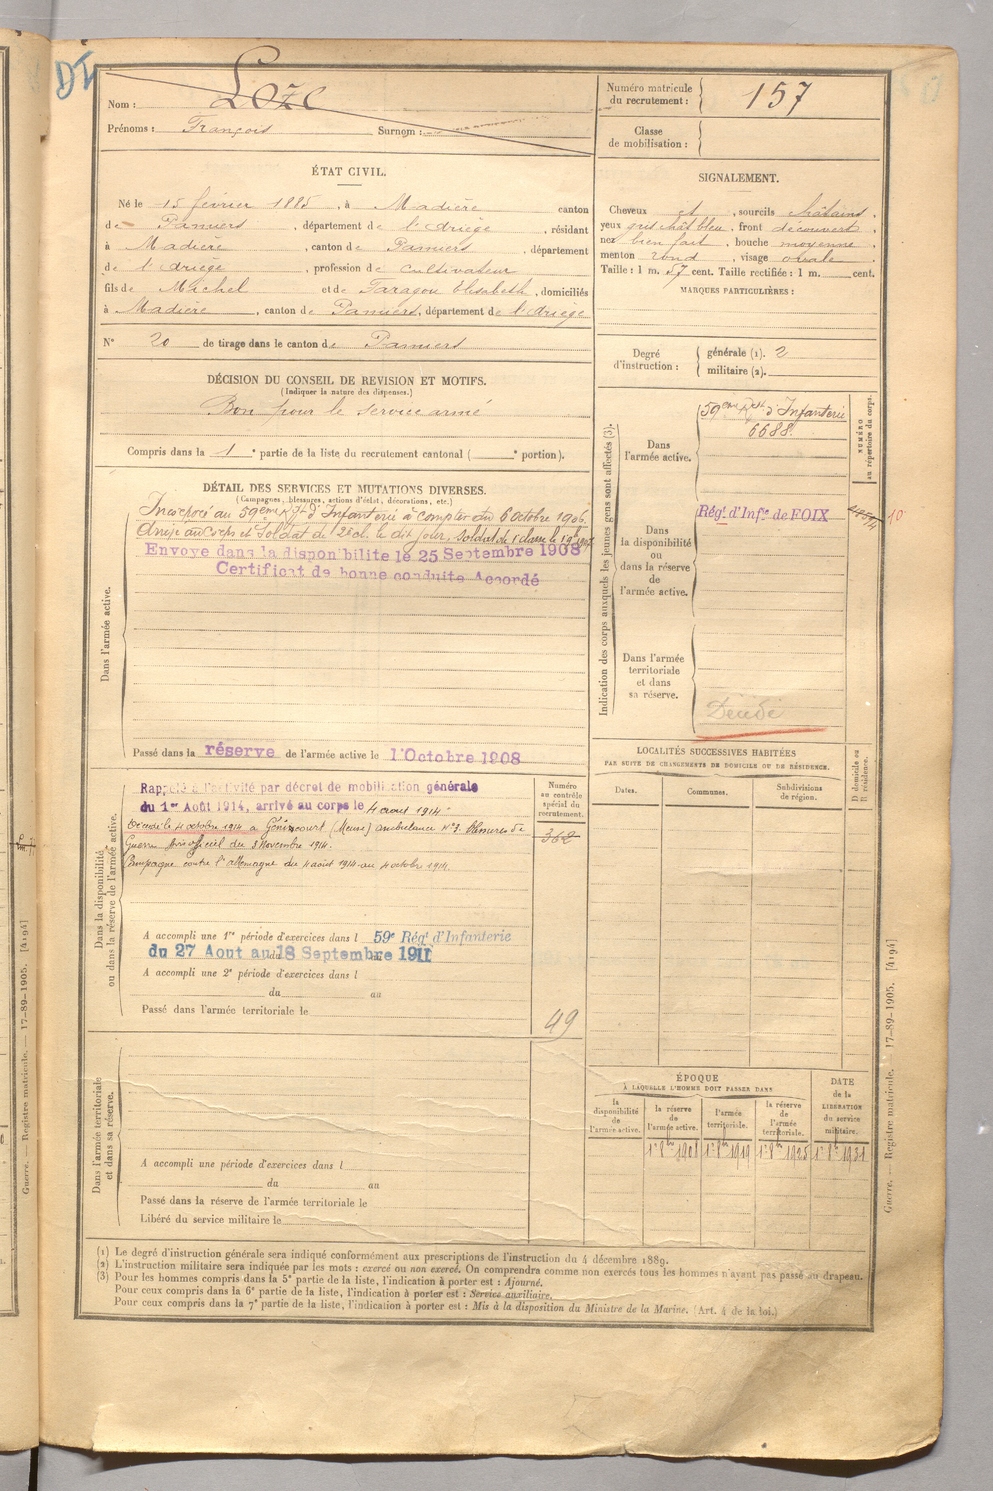 DI
Nom : Loze
Prénoms : François Surnom :
Numéro matricule du recrutement : 157
Classe de mobilisation :
ÉTAT CIVIL.
Né le 15 février 1885, à Madière canton
de Pamiers, département de l'Ariège, résidant
à Madière, canton de Pamiers, département
de l'Ariège, profession de cultivateur
fils de Michel et de Taragou Elisabeth, domiciliés
à Madière, canton de Pamiers, département de l'Ariège
N° 20 de tirage dans le canton de Pamiers
SIGNALEMENT.
Cheveux et, sourcils châtains,
yeux gris chât bleu, front découvert,
nez bien fait, bouche moyenne
menton rond, visage ovale.
Taille : 1 m. 57 cent. Taille rectifiée : 1 m. cent.
MARQUES PARTICULIÈRES :
Degré d'instruction : générale (1). 2
militaire (2).
DÉCISION DU CONSEIL DE REVISION ET MOTIFS.
(Indiquer la nature des dispenses.)
Bon pour le service armé
Compris dans la 1e partie de la liste du recrutement cantonal ( e portion).
DÉTAIL DES SERVICES ET MUTATIONS DIVERSES.
(Campagnes, blessures, actions d'éclat, décorations, etc.)
Dans l'armée active.
Incorporé au 59ème Rgt d'Infanterie à compter du 6 octobre 1906.
Arrivé au corps et soldat de 2e cl. le dit jour, soldat de 1e classe le
Envoyé dans la disponibilité le 25 Septembre 1908
Certificat de bonne conduite Accordé
Passé dans la réserve de l'armée active le 1 Octobre 1908
Indication des corps auxquels les jeunes gens sont affectés (3).
NUMÉRO au répertoire du corps.
Dans l'armée active.
59ème Rgt d'Infanterie
6688.
Dans la disponibilité ou dans la réserve de l'armée active.
Régt d'Infie de FOIX
10
Dans l'armée territoriale et dans sa réserve.
Décédé
LOCALITÉS SUCCESSIVES HABITÉES
PAR SUITE DE CHANGEMENTS DE DOMICILE OU DE RÉSIDENCE.
Dates. Communes. Subdivisions de région. D domicile ou R résidence.
Dans la disponibilité ou dans la réserve de l'armée active.
Numéro au contrôle spécial du recrutement.
362
Rappelé à l'activité par décret de mobilisation générale
du 1er Août 1914, arrivé au corps le 4 aout 1914.
Décédé le 4 octobre 1914 à Génicourt (Meuse) ambulance N°3. Blessures de
Guerre. Avis officiel du 3 Novembre 1914.
Campagne contre l'Allemagne du 4 aout 1914 au 4 octobre 1914
A accompli une 1re période d'exercices dans l 59e Régt d'Infanterie
du 27 Aout au 18 Septembre 1911
A accompli une 2e période d'exercices dans l
du au
Passé dans l'armée territoriale le
49
Dans l'armée territoriale et dans sa réserve.
A accompli une période d'exercices dans l
du au
Passé dans la réserve de l'armée territoriale le
Libéré du service militaire le
ÉPOQUE
À LAQUELLE L'HOMME DOIT PASSER DANS
la disponibilité de l'armée active.
la réserve de l'armée active.
l'armée territoriale.
la réserve de l'armée territoriale.
DATE de la LIBÉRATION du service militaire.
1er 8bre 1908 1er 8bre 1919 1er 8bre 1925 1er 8bre 1931
(1) Le degré d'instruction générale sera indiqué conformément aux prescriptions de l'instruction du 4 décembre 1889.
(2) L'instruction militaire sera indiquée par les mots : exercé ou non exercé. On comprendra comme non exercés tous les hommes n'ayant pas passé au drapeau.
(3) Pour les hommes compris dans la 5e partie de la liste, l'indication à porter est : Ajourné.
Pour ceux compris dans la 6e partie de la liste, l'indication à porter est : Service auxiliaire.
Pour ceux compris dans la 7e partie de la liste, l'indication à porter est : Mis à la disposition du Ministre de la Marine. (Art. 4 de la loi.)
Guerre. — Registre matricule. — 17-89-1905. [4194]
Guerre. — Registre matricule. — 17-89-1905. [4194]